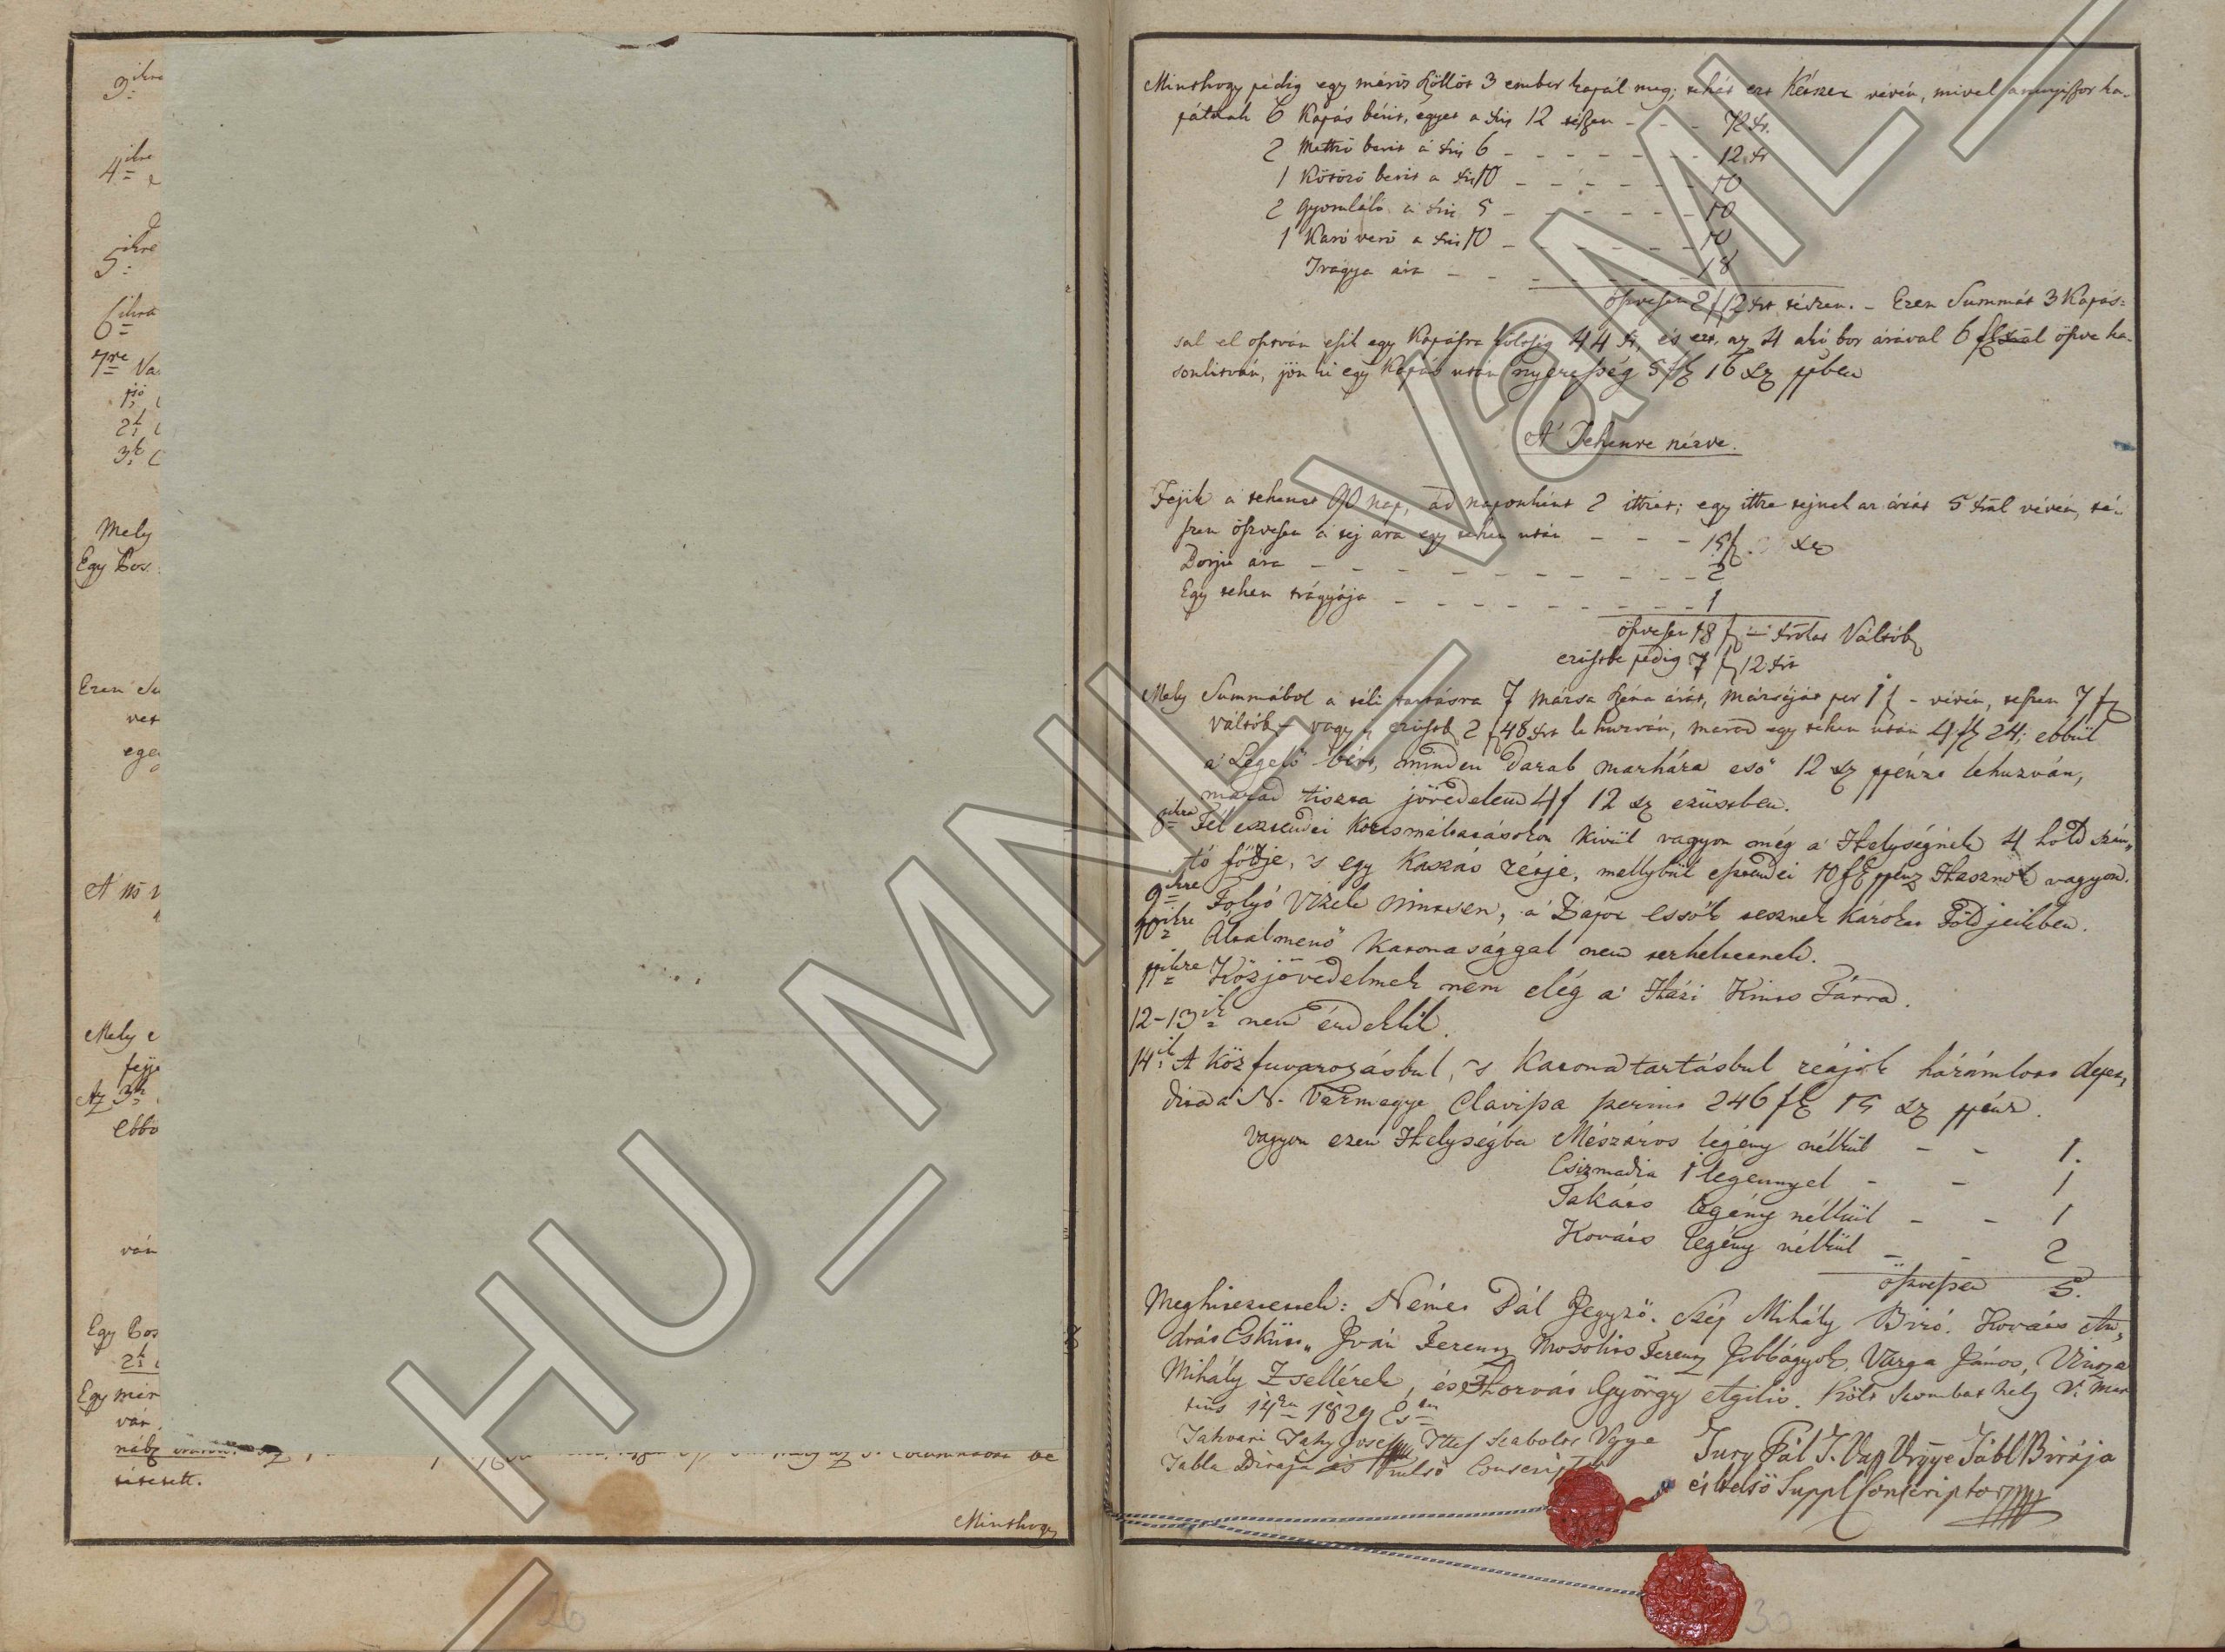 3ikra
4ikre
5ikre
6ikra
7re Va
1ső
2k
3k
Mely
Egy Pos.
Ezen Su
vet
ege
A
Mely e
fejje
Az 3k
ebbő
ván
Egy Pos
2k
Egy mér
ván
sittetett.
Minthogy
Minthogy pedig egy mérős Köllőt 3 ember kapál meg; tehát ezt Kétszer vévén, mivel annyiszor ka-
páltnak 6 Kapás bérit, egyet a xris 12 tészen - - - 72 xr.
2 Mettző berit á xris 6 - - - - - - 12 xr
1 Kötöző berit a xris 10 - - - - - - 10
2 Gyomláló á xris 5 - - - - - - 10
1 Karó verő a xris 10 - - - - - - 10
Tragya ára - - - - - - 18
öszvesen 2 f 12 xrt tészen. - Ezen Summát 3 Kapás-
sal el osztván esik egy Kapásra költség 44 xr, és ezt az 4 akó bor árával 6 öszve ha-
sonlitván, jön ki egy Kapás után nyeresség 5 f 16 xr ppben
A' Tehenre nézve.
Fejik a tehenet 90 nap, ád naponként 2 ittzét; egy ittze tejnek az árát 5 xrál vévén, té-
szen öszvesen a tej ára egy tehen után - - - 15 f xr
Borju ára - - - - - - - - - 2
Egy tehen trágyája - - - - - - - - 1
öszvesen 18 f - xrokat Váltób
ezüstbe pedig 7 f 12 xrt
Mely Summábol a téli tartásra 7 Mársa széna árát, Mársáját per 1 f - vévén, teszen 7 f
váltób - vagy ezüstb 2 f 48 xrt le huzván, marad egy tehen után 4 f 24; ebbül
a' Legelő bért, minden darab marhára eső 12 xr ppénzt lehuzván,
marad tiszta jövedelem 4 f 12 xr ezüstben.
8ikra Fél esztendei Kortsmáltatásokon Kivül vagyon még a' Helységnek 4 hold szán-
tó födje, 's egy Kaszás rétje, mellybül esztendei 10 f ppénz Hasznok vagyon.
9ikre Folyó Vizek nintsen, a' Zápor essők tesznek károkat Földjeikben.
10ikre Átsalmenő Katonasággal nem terheltetnek.
11ikre Közjövedelmek nem elég a' Házi Kints Tárra.
12-13ik nem érdekli.
14ik A Köz fuvarozásbul, 's Katonatartásbul reájok hárámlott depur-
a' N. Vármegye Clavissa szerint 246 f 15 xr ppénz.
Vagyon ezen Helységbe Mészáros legény nélkül - - 1.
Csizmadia 1 legennyel - - 1
Takáts legény nélkül - - 1
Kováts legény nélkül - - 2
öszvessen 5.
Meghiteztettek: Német Pál Jegyző. Szép Mihály Biró. Kováts An-
drás Esküt, Iván Ferentz Mosolits Ferentz Jobbágyok, Varga János, Vincze
Mihály Zsellérek, és Horvát György Agilis. Költ Szombathely V. Mar-
tius 14én 1829 Esen
Jakvari Jaky Josef Ttes Szabolts Vgye
Tabla Birája és Külső Conscriptor
Jury Pál T. Vas Vrgye Tábl Birája
és belső Suppl Conscriptor
26
30
HU_MNL_VaML_I